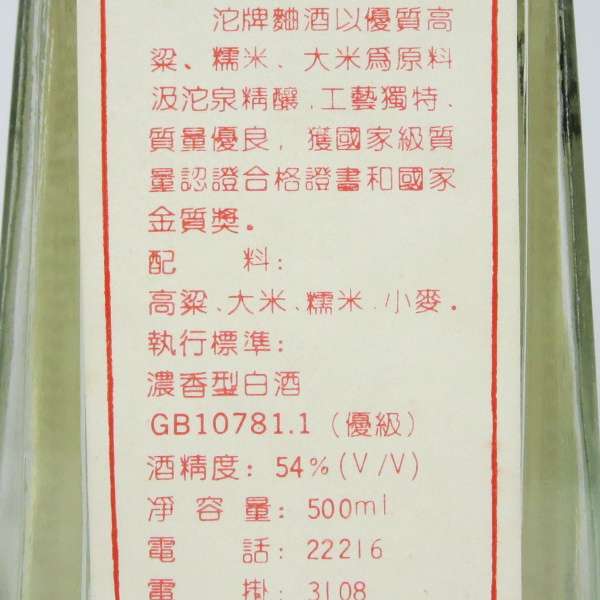 沱牌麯酒以優質高
粱、糯米、大米爲原料
汲沱泉精釀、工藝獨特、
質量優良，獲國家級質
量認證合格證書和國家
金質獎。
配 料：
高粱、大米、糯米、小麥．
執行標準：
濃香型白酒
GB10781.1（優級）
酒精度：54%(V/V)
凈容量：500ml
電 話：22216
電 掛：3108